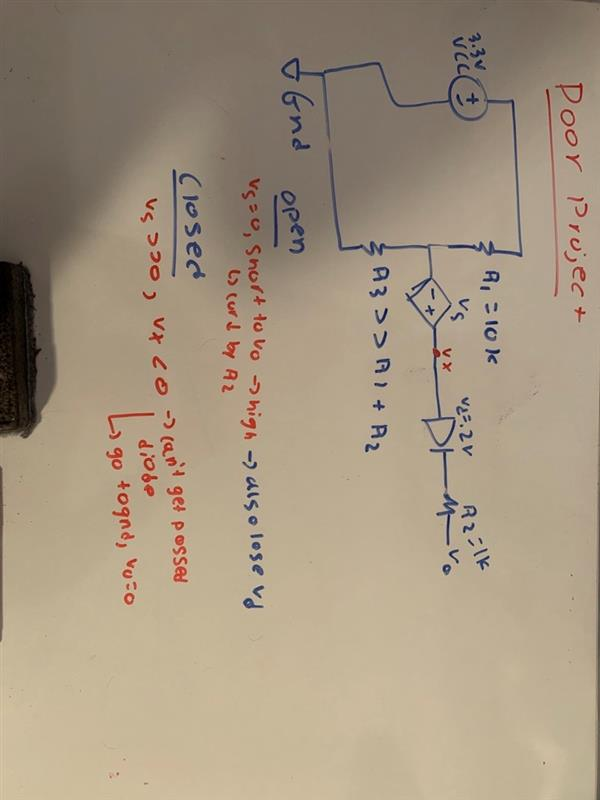 Poor Project
3.3V
VCC
+
-
R1 = 10K
Vs
- +
Vx
VL=.2V
R2=1K
Vo
R3 >> R1 + R2
Gnd
open
Vs=0, Short to Vo → high → also lose Vd
↳ curd by R2
Closed
Vs >>0, Vx < 0 → can't get passed
diode
↳ go to gnd, Vo=0